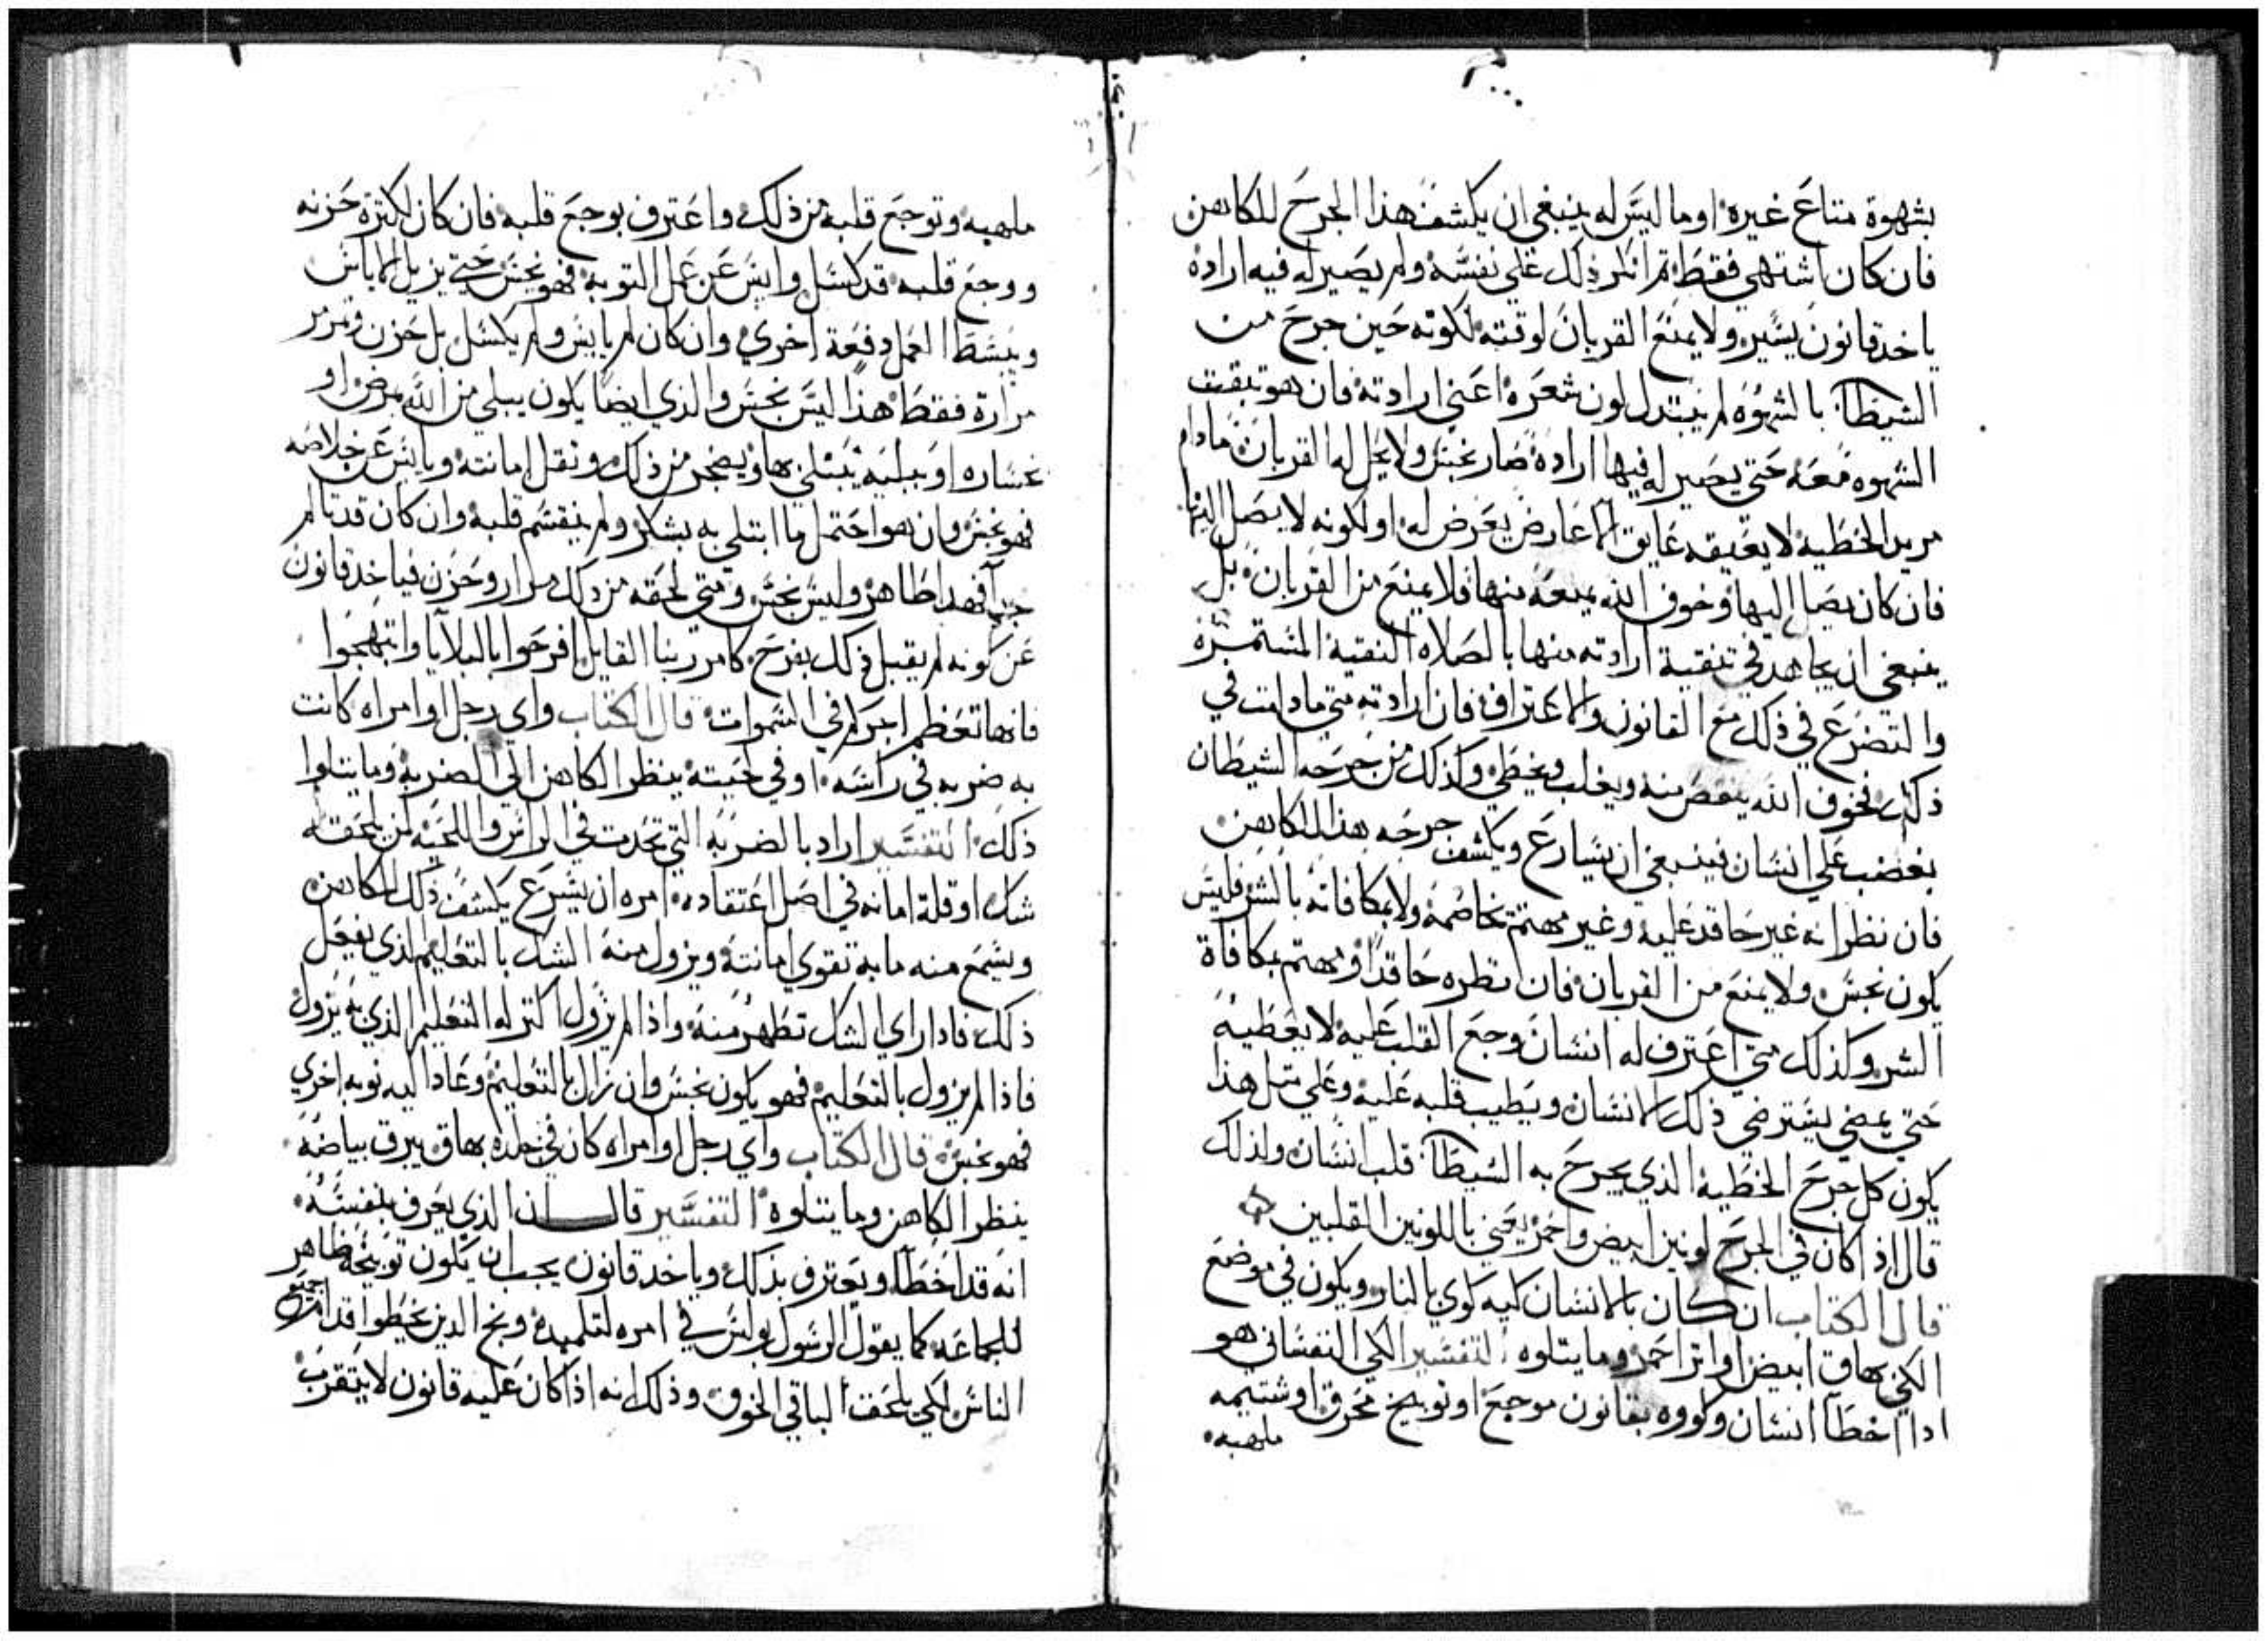 بشهوة متاع غيره او ما ليس له ينبغي ان يكشف هذا الجرح للكاهن
فان كان اشتهي فقط ثم انكر ذلك علي نفسه ولم يصير له فيه اراده
ياخد قانون يسير ولا يمنع القربان لوقته لكونه حين جرح من
الشيطان بالشهوه لم يتبدل لون شعره اعني ارادته فان هو تبقت
الشهوه معه حتي يصير له فيها اراده صار نجس ولا يحل له القربان مادام
مريد الخطيه لا يعيقه عايق الا عارض يعرض له او لكونه لا يصل اليها
فان كان يصل اليها وخوف الله يمنعه منها فلا يمنع من القربان بل
ينبغي ان يجاهد في تنقية ارادته منها بالصلاه النقية المستمره
والتضرع في ذلك مع القانون والاعتراف فان ارادته متي مادامت في
ذلك فخوف الله ينقص منه ويغلب ويخطي وكذلك من جرحه الشيطان
بغضب علي انسان فينبغي ان يسارع ويكشف جرحه هذا للكاهن
فان نظر انه غير حاقد عليه وغير مهتم بمخاصمة ولا بمكافاته بالشر فليس
يكون نجس ولا يمنع من القربان فان نظره حاقدا ومهتم بمكافاة
الشر وكذلك متي اعترف له انسان وجع القلب عليه لا يعطيه
حتي يمضي يسترضي ذلك الانسان ويطيب قلبه عليه وعلي مثل هذا
يكون كل جرح الخطية الذي يجرح به الشيطان قلب انسان ولذلك
قال اذا كان في الجرح لونين ابيض واحمر يعني باللونين القلبين
قال الكتاب ان كان بالانسان كيه كوي بالنار ويكون في موضع
الكي بهاق ابيض او اثر احمر وما يتلوه التفسير الكي النفساني هو
اذا اخطا انسان وكووه بقانون موجع او توبيخ محرق او شتيمه
ملهبه
ملهبه وتوجع قلبه من ذلك واعترف بوجع قلبه فان كان لكثرة حزنه
ووجع قلبه قد كسل وايس عن عمل التوبه فهو نجس حتي يزيل الاياس
وينشط العمل دفعة اخري وان كان لم يايس ولم يكسل بل حزن وتمرمر
مرارة فقط هذا ليس بنجس والذي ايضا يكون يبلي من الله بمرض او
خساره او ببلية يبتلي بها ويضجر من ذلك وتقل امانته ويايس عن خلاصه
فهو نجس وان هو احتمل ما ابتلي به بشكر ولم ينقسم قلبه وان كان قد تالم
فهدا طاهر وليس نجس ومتي لحقه من ذلك مرار وحزن فياخد قانون
عن كونه لم يقبل ذلك بفرح كامر ربنا القايل افرحوا بالبلايا وابتهجوا
فانها تعظم اجركم في السموات قال الكتاب واي رجل او امراه كانت
به ضربه في راسه او في لحيته ينظر الكاهن الي الضربه وما يتلوا
ذلك التفسير اراد بالضربه التي تحدت في الراس واللحيه لمن يلحقه
شك او قلة امانه في اصل اعتقاده امره ان يسرع يكشف ذلك للكاهن
ويسمع منه ما به تقوي امانته ويزول منه الشك بالتعليم الذي يفعل
ذلك فادا راي الشك تطهر منه واذا لم يزول اكثر له التعليم الذي به يزول
فاذا لم يزول بالتعليم فهو يكون نجس وان زال بالتعليم وعاد اليه نوبه اخري
فهو نجس قال الكتاب واي رجل او امراه كان في جلده بهاق يبرق بياضه
ينظر الكاهن وما يتلوه التفسير قال ان الذي يعرف بنفسه
انه قد اخطا ويعترف بذلك وياخد قانون يجب ان يكون توبيخه ظاهر
للجماعه كما يقول الرسول بولس في امره لتلميده وبخ الدين يخطوا قدام جميع
الناس لكي يلحق الباقي الخوف وذلك انه اذا كان عليه قانون لا يتقرب